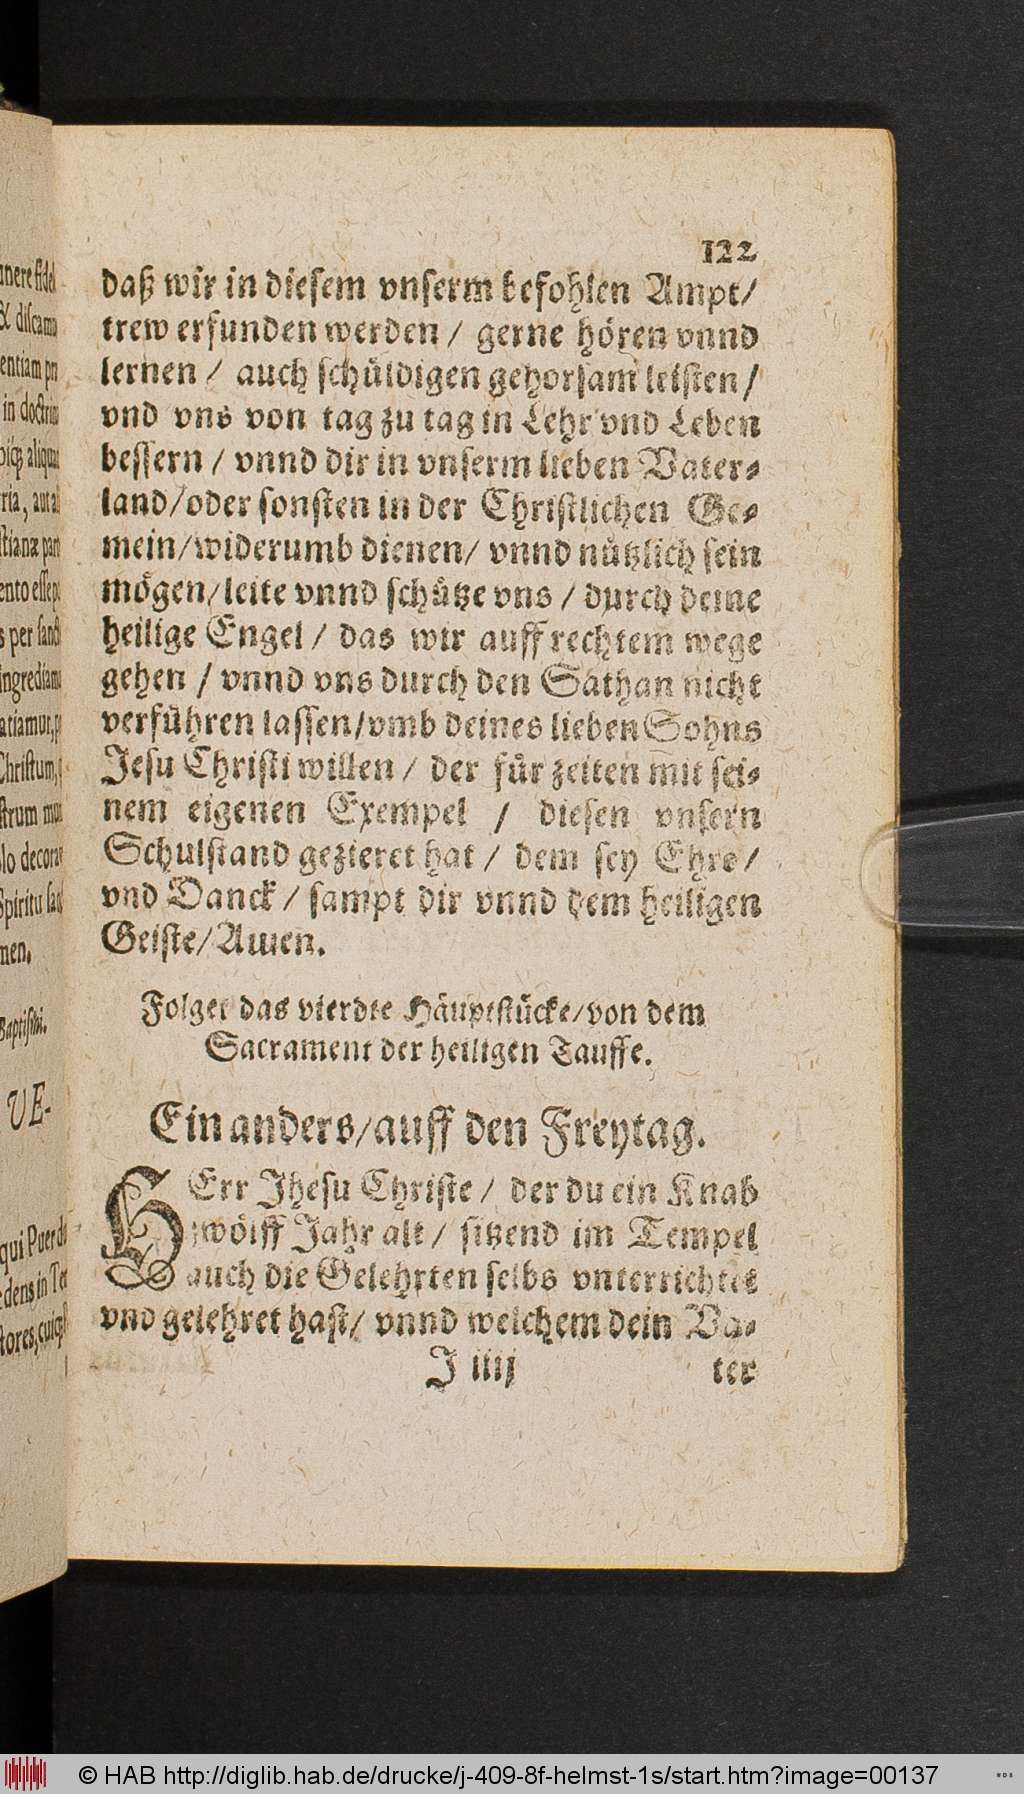 122
daß wir in diesem vnserm befohlen Ampt/
trew erfunden werden / gerne hören vnnd
lernen / auch schüldigen gehorsam leisten /
vnd vns von tag zu tag in Lehr vnd Leben
bessern / vnnd dir in vnserm lieben Vater-
land/oder sonsten in der Christlichen Ge-
mein/widerumb dienen/ vnnd nützlich sein
mögen/leite vnnd schütze vns / durch deine
heilige Engel / das wir auff rechtem wege
gehen / vnnd vns durch den Sathan nicht
verführen lassen/vmb deines lieben Sohns
Jesu Christi willen / der für zeiten mit sei-
nem eigenen Exempel / diesen vnsern
Schulstand gezieret hat / dem sey Ehre /
vnd Danck / sampt dir vnnd dem heiligen
Geiste/ Amen.
Folget das vierdte Häuptstücke/von dem
Sacrament der heiligen Tauffe.
Ein anders/auff den Freytag.
HErr Jhesu Christe / der du ein Knab
zwölff Jahr alt / sitzend im Tempel
auch die Gelehrten selbs vnterrichtet
vnd gelehret hast/ vnnd welchem dein Va-
J iiij ter
nere fidel
& discam
entiam pr
in doctrin
aliqua
ria, aut a
stianæ part
ento esse p
s per sanct
ingrediam
atiamur, p
Christum,
strum mun
lo decora
Spiritu san
men.
Baptismi.
VE-
qui Puer d
dens in Te
tores, cuiq;
© HAB http://diglib.hab.de/drucke/j-409-8f-helmst-1s/start.htm?image=00137